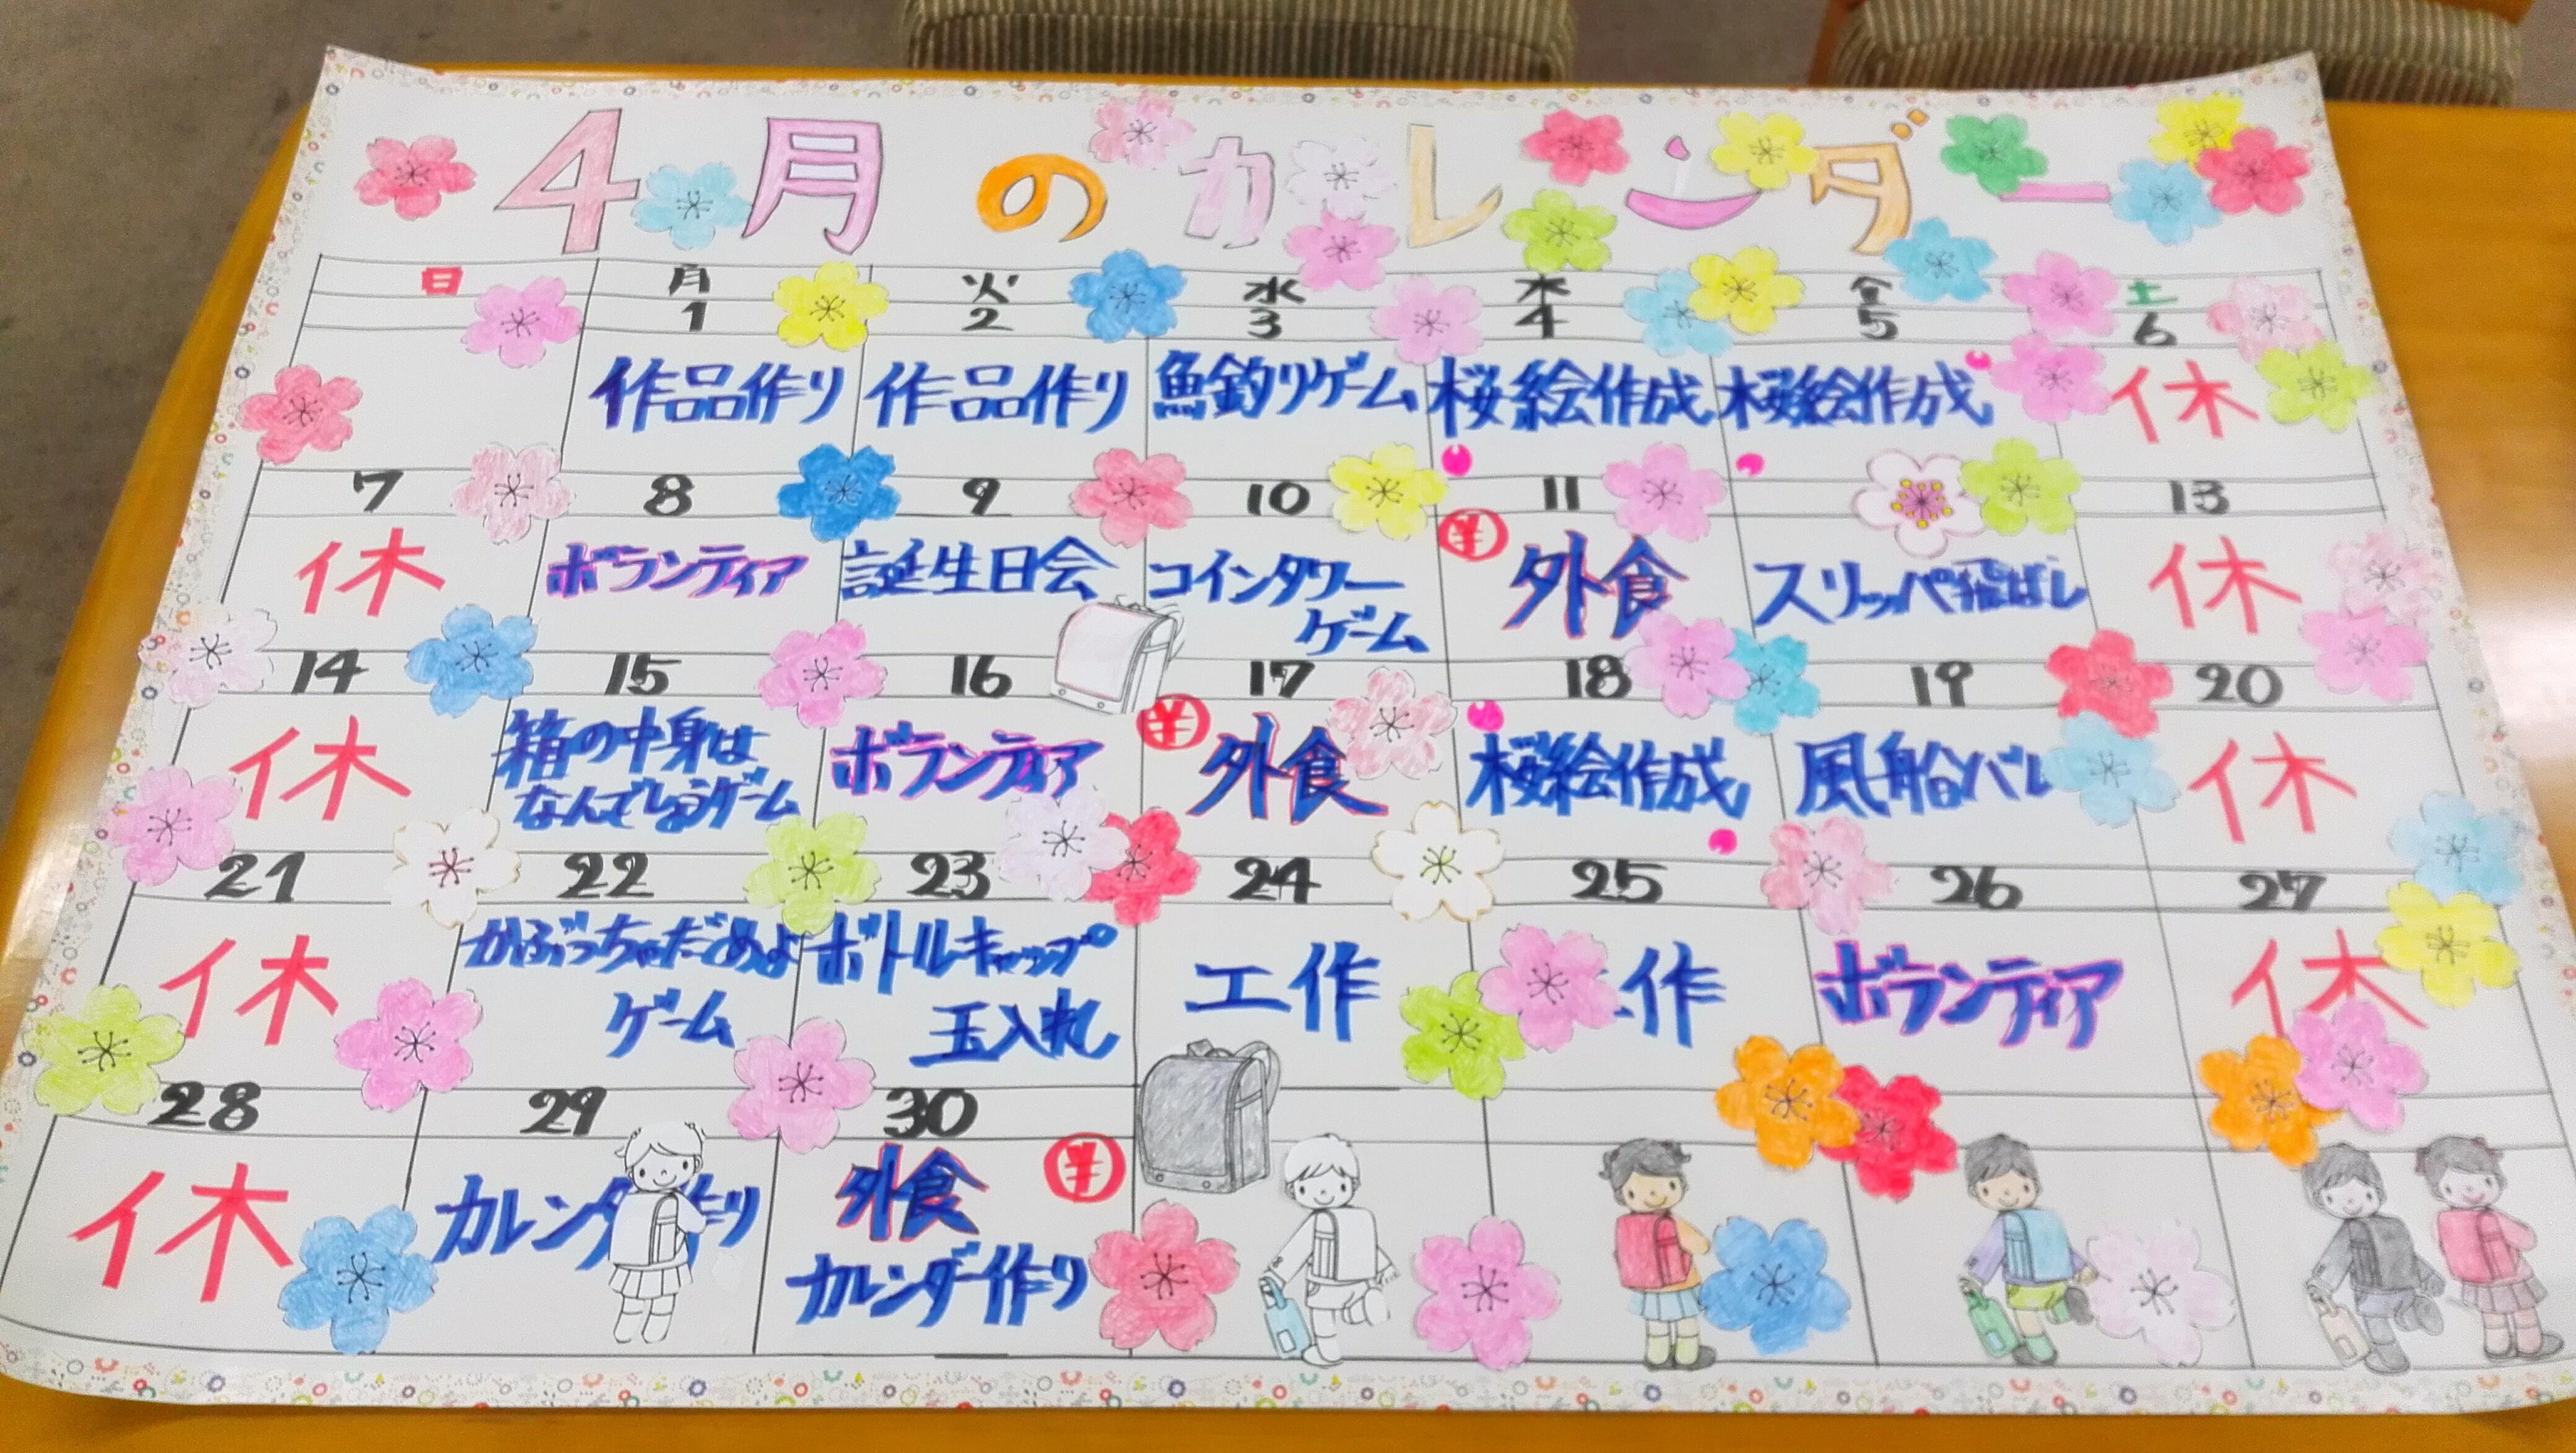 4月のカレンダー
日 月 火 水 木 金 土
1 2 3 4 5 6
作品作り 作品作り 魚釣りゲーム 桜絵作成 桜絵作成 休
7 8 9 10 11 13
休 ボランティア 誕生日会 コインタワー ¥ 外食 スリッパ飛ばし 休
ゲーム
14 15 16 17 18 19 20
休 箱の中身は ボランティア ¥ 外食 桜絵作成 風船バレ 休
なんでしょうゲーム
21 22 23 24 25 26 27
休 かぶっちゃだめよ ボトルキャップ 工作 作 ボランティア 休
ゲーム 玉入れ
28 29 30
休 カレンダ 作り 外食 ¥
カレンダー作り